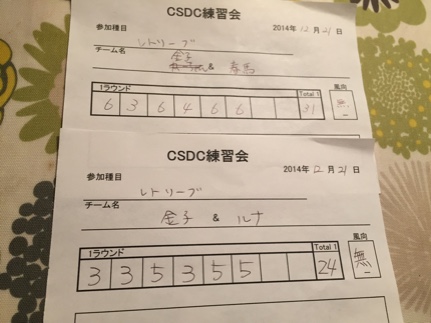 CSDC練習会
2014年12月21日
参加種目
レトリーブ
チーム名
金子
&
1ラウンド
Total 1
風向
6 3 6 4 6 6 31
無
CSDC練習会
2014年12月21日
参加種目
レトリーブ
チーム名
金子 & ルナ
1ラウンド
Total 1
風向
3 3 5 3 5 5 24
無